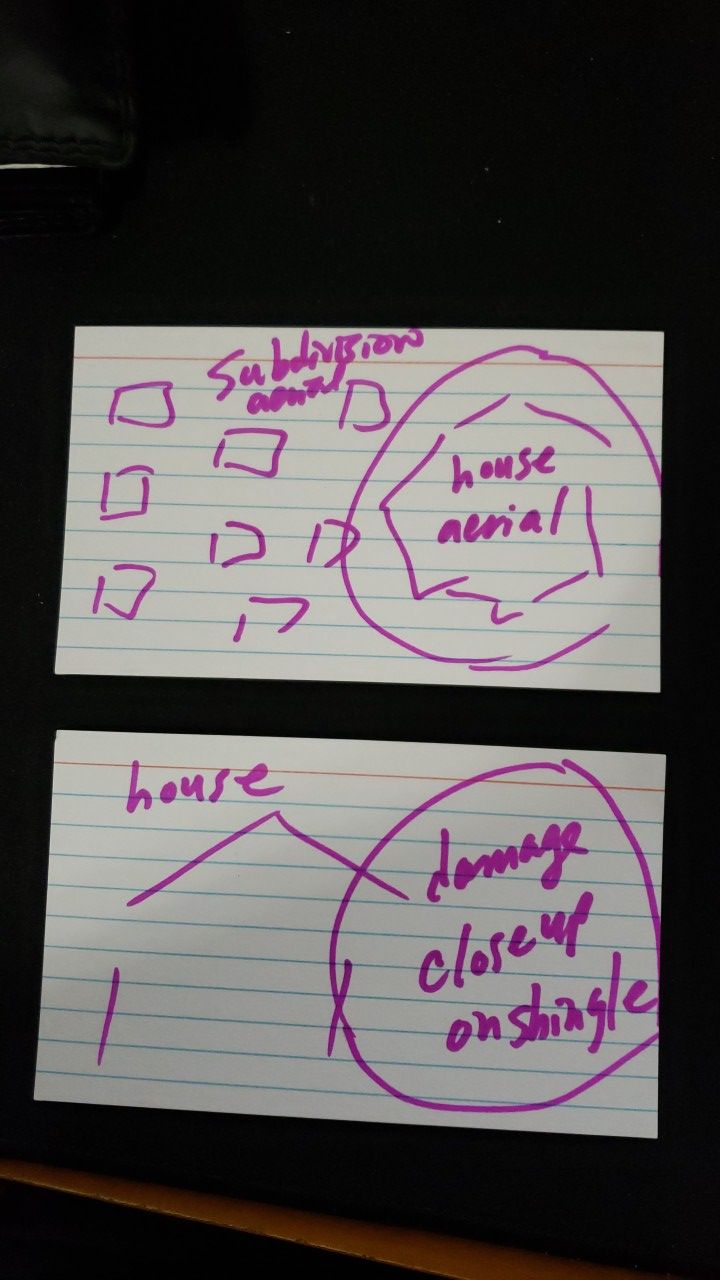 Subdivision
aerial
house
aerial
house
damage
close up
on shingle